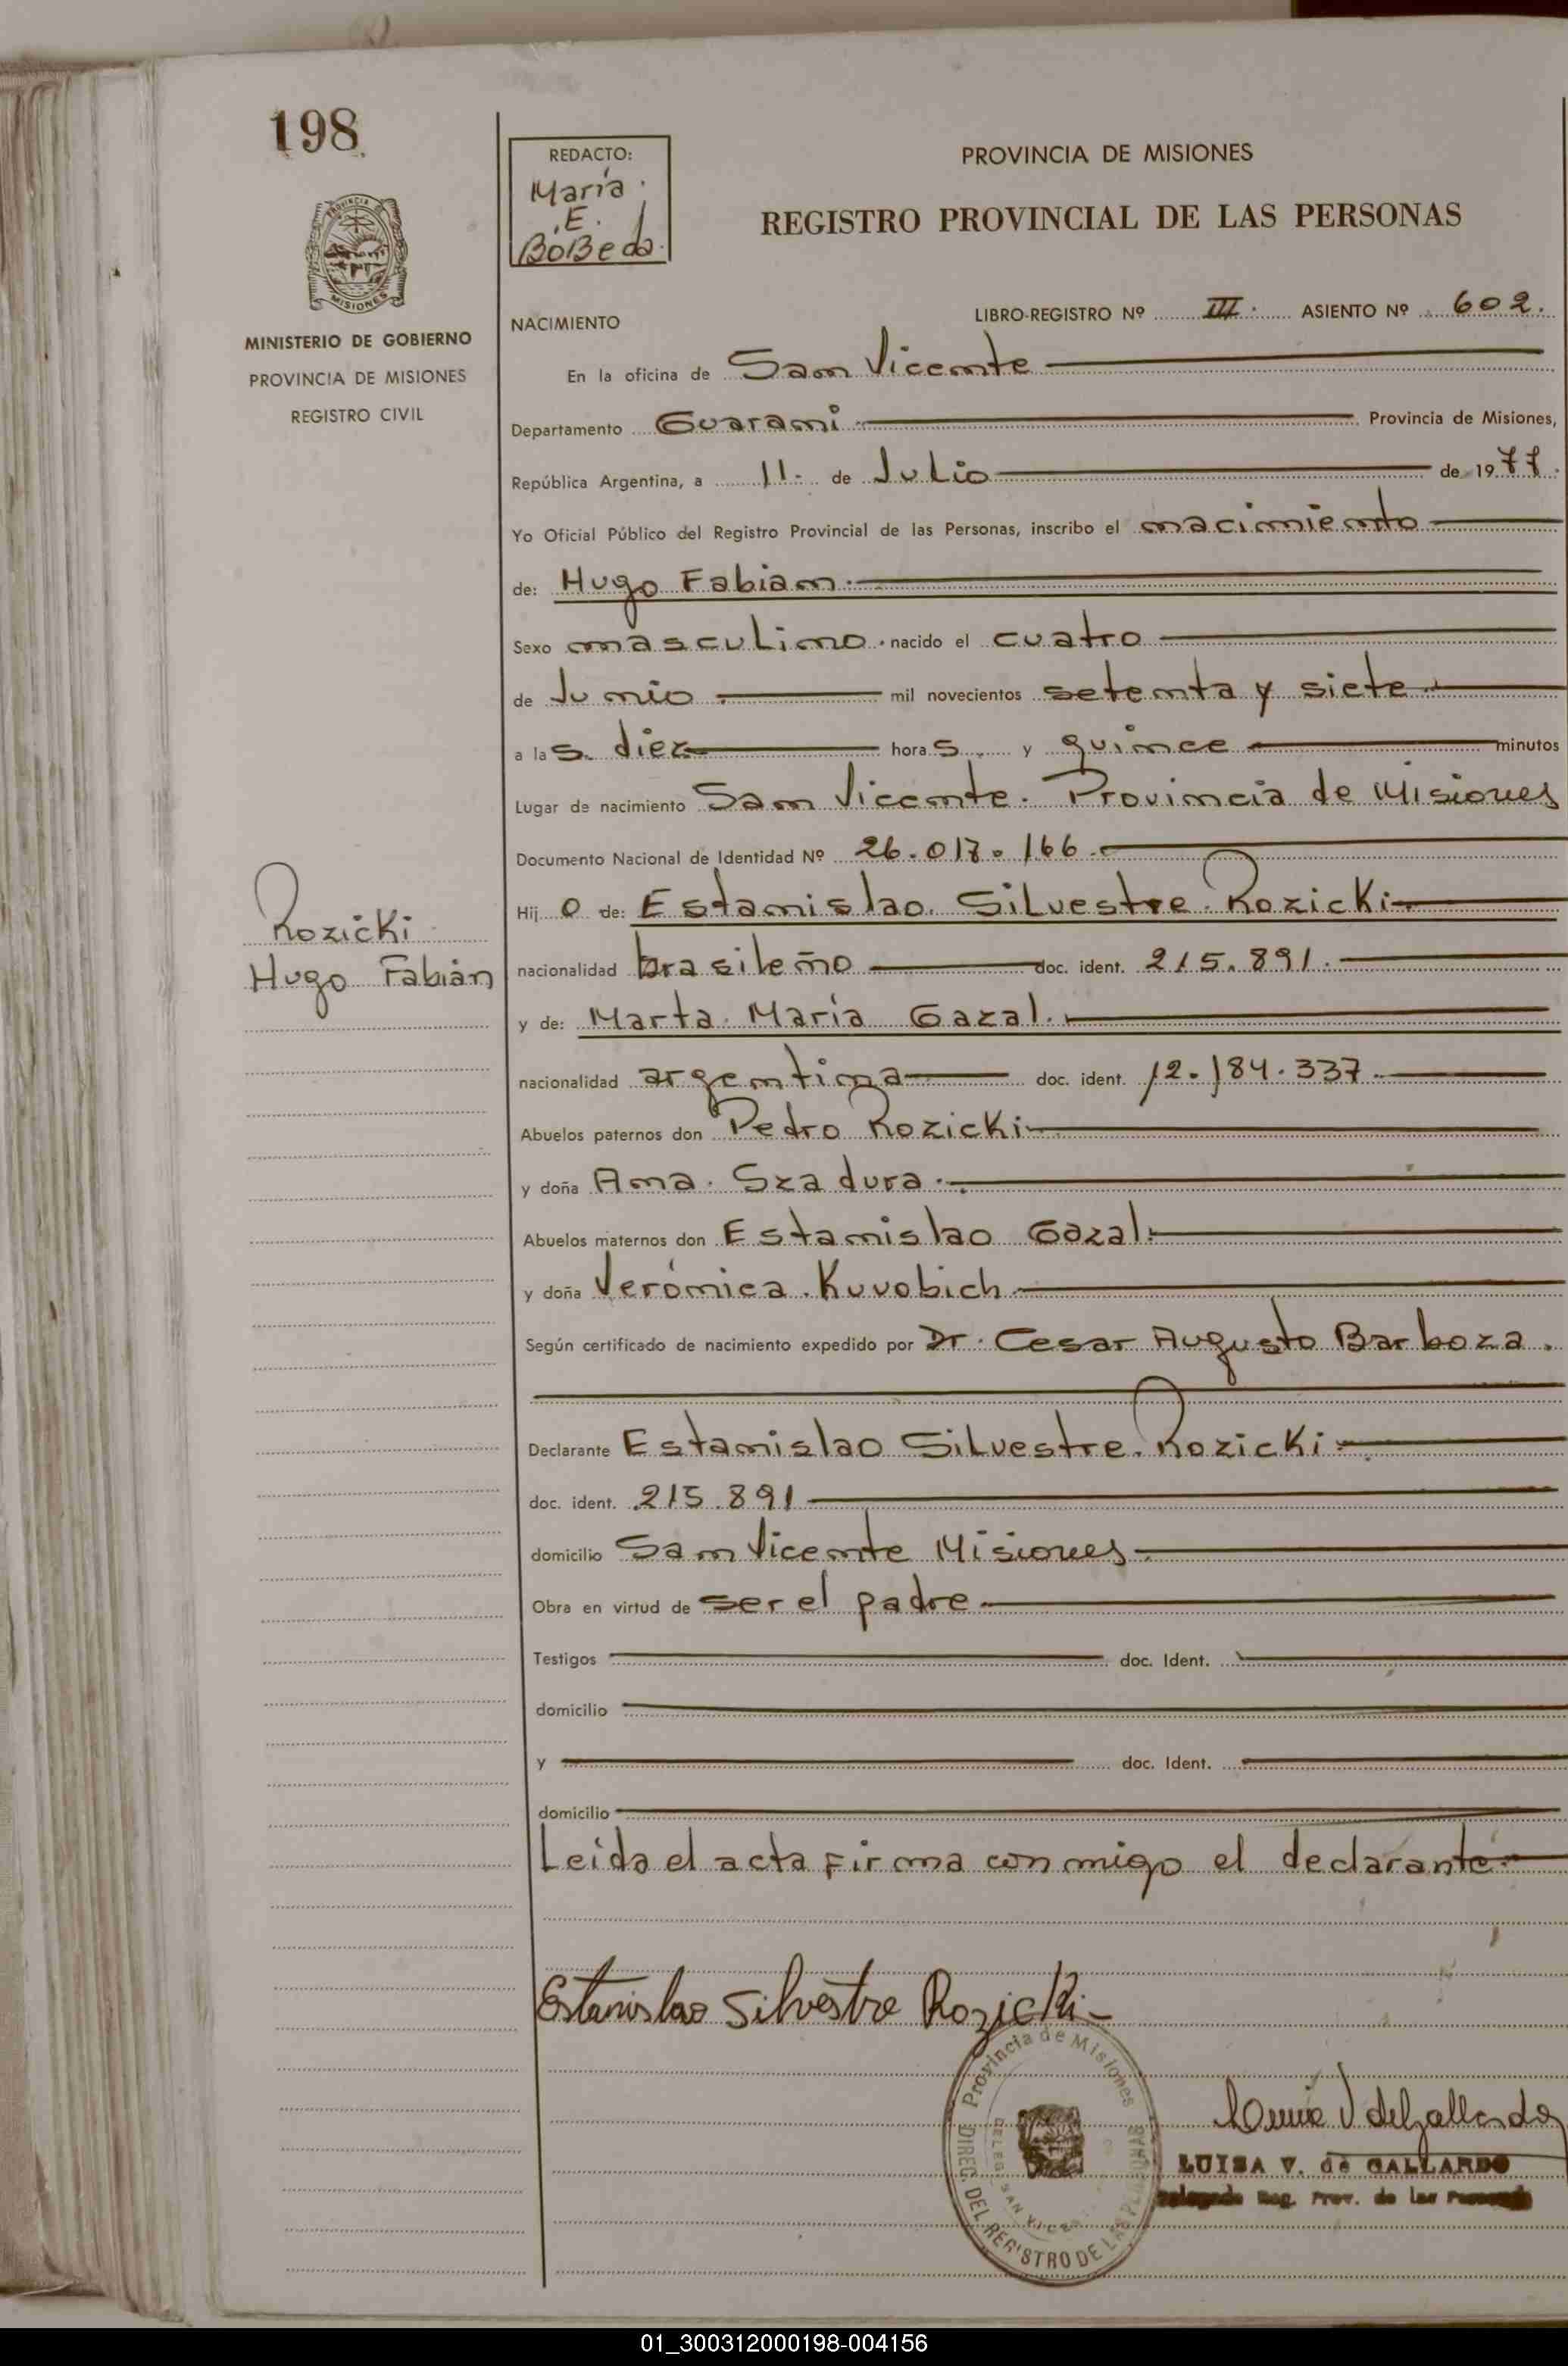 198
REDACTO:
María
E.
BoBeda.
PROVINCIA DE MISIONES
REGISTRO PROVINCIAL DE LAS PERSONAS
MISIONES
MINISTERIO DE GOBIERNO
PROVINCIA DE MISIONES
REGISTRO CIVIL
NACIMIENTO
LIBRO-REGISTRO Nº III. ASIENTO Nº 602.
En la oficina de San Vicente
Departamento Guarani Provincia de Misiones,
República Argentina, a 11. de Julio de 1977.
Yo Oficial Público del Registro Provincial de las Personas, inscribo el nacimiento
de: Hugo Fabian.
Sexo masculino. nacido el cuatro
de Junio mil novecientos setenta y siete.
a las. diez horas y quince minutos
Lugar de nacimiento San Vicente. Provincia de Misiones
Documento Nacional de Identidad Nº 26.017.166.
Hijo de: Estanislao. Silvestre. Rozicki
Rozicki
Hugo Fabián
nacionalidad brasileño doc. ident. 215.891.
y de: Marta. María Gazal.
nacionalidad argentina doc. ident. 12.184.337.
Abuelos paternos don Pedro Rozicki
y doña Ana. Szadura.
Abuelos maternos don Estanislao Gazal.
y doña Verónica. Kuvobich
Según certificado de nacimiento expedido por Dr. Cesar Augusto Barboza.
Declarante Estanislao Silvestre. Rozicki
doc. ident. 215.891
domicilio San Vicente Misiones
Obra en virtud de ser el padre
Testigos doc. Ident.
domicilio
y doc. Ident.
domicilio
Leida el acta firma conmigo el declarante
Estanislao Silvestre Rozicki
Provincia de Misiones
DIREC. DEL REGISTRO DE LAS PERSONAS
DELEG. SAN VICENTE
LUISA V. de GALLARDO
Delegada Reg. Prov. de las Personas
01_300312000198-004156